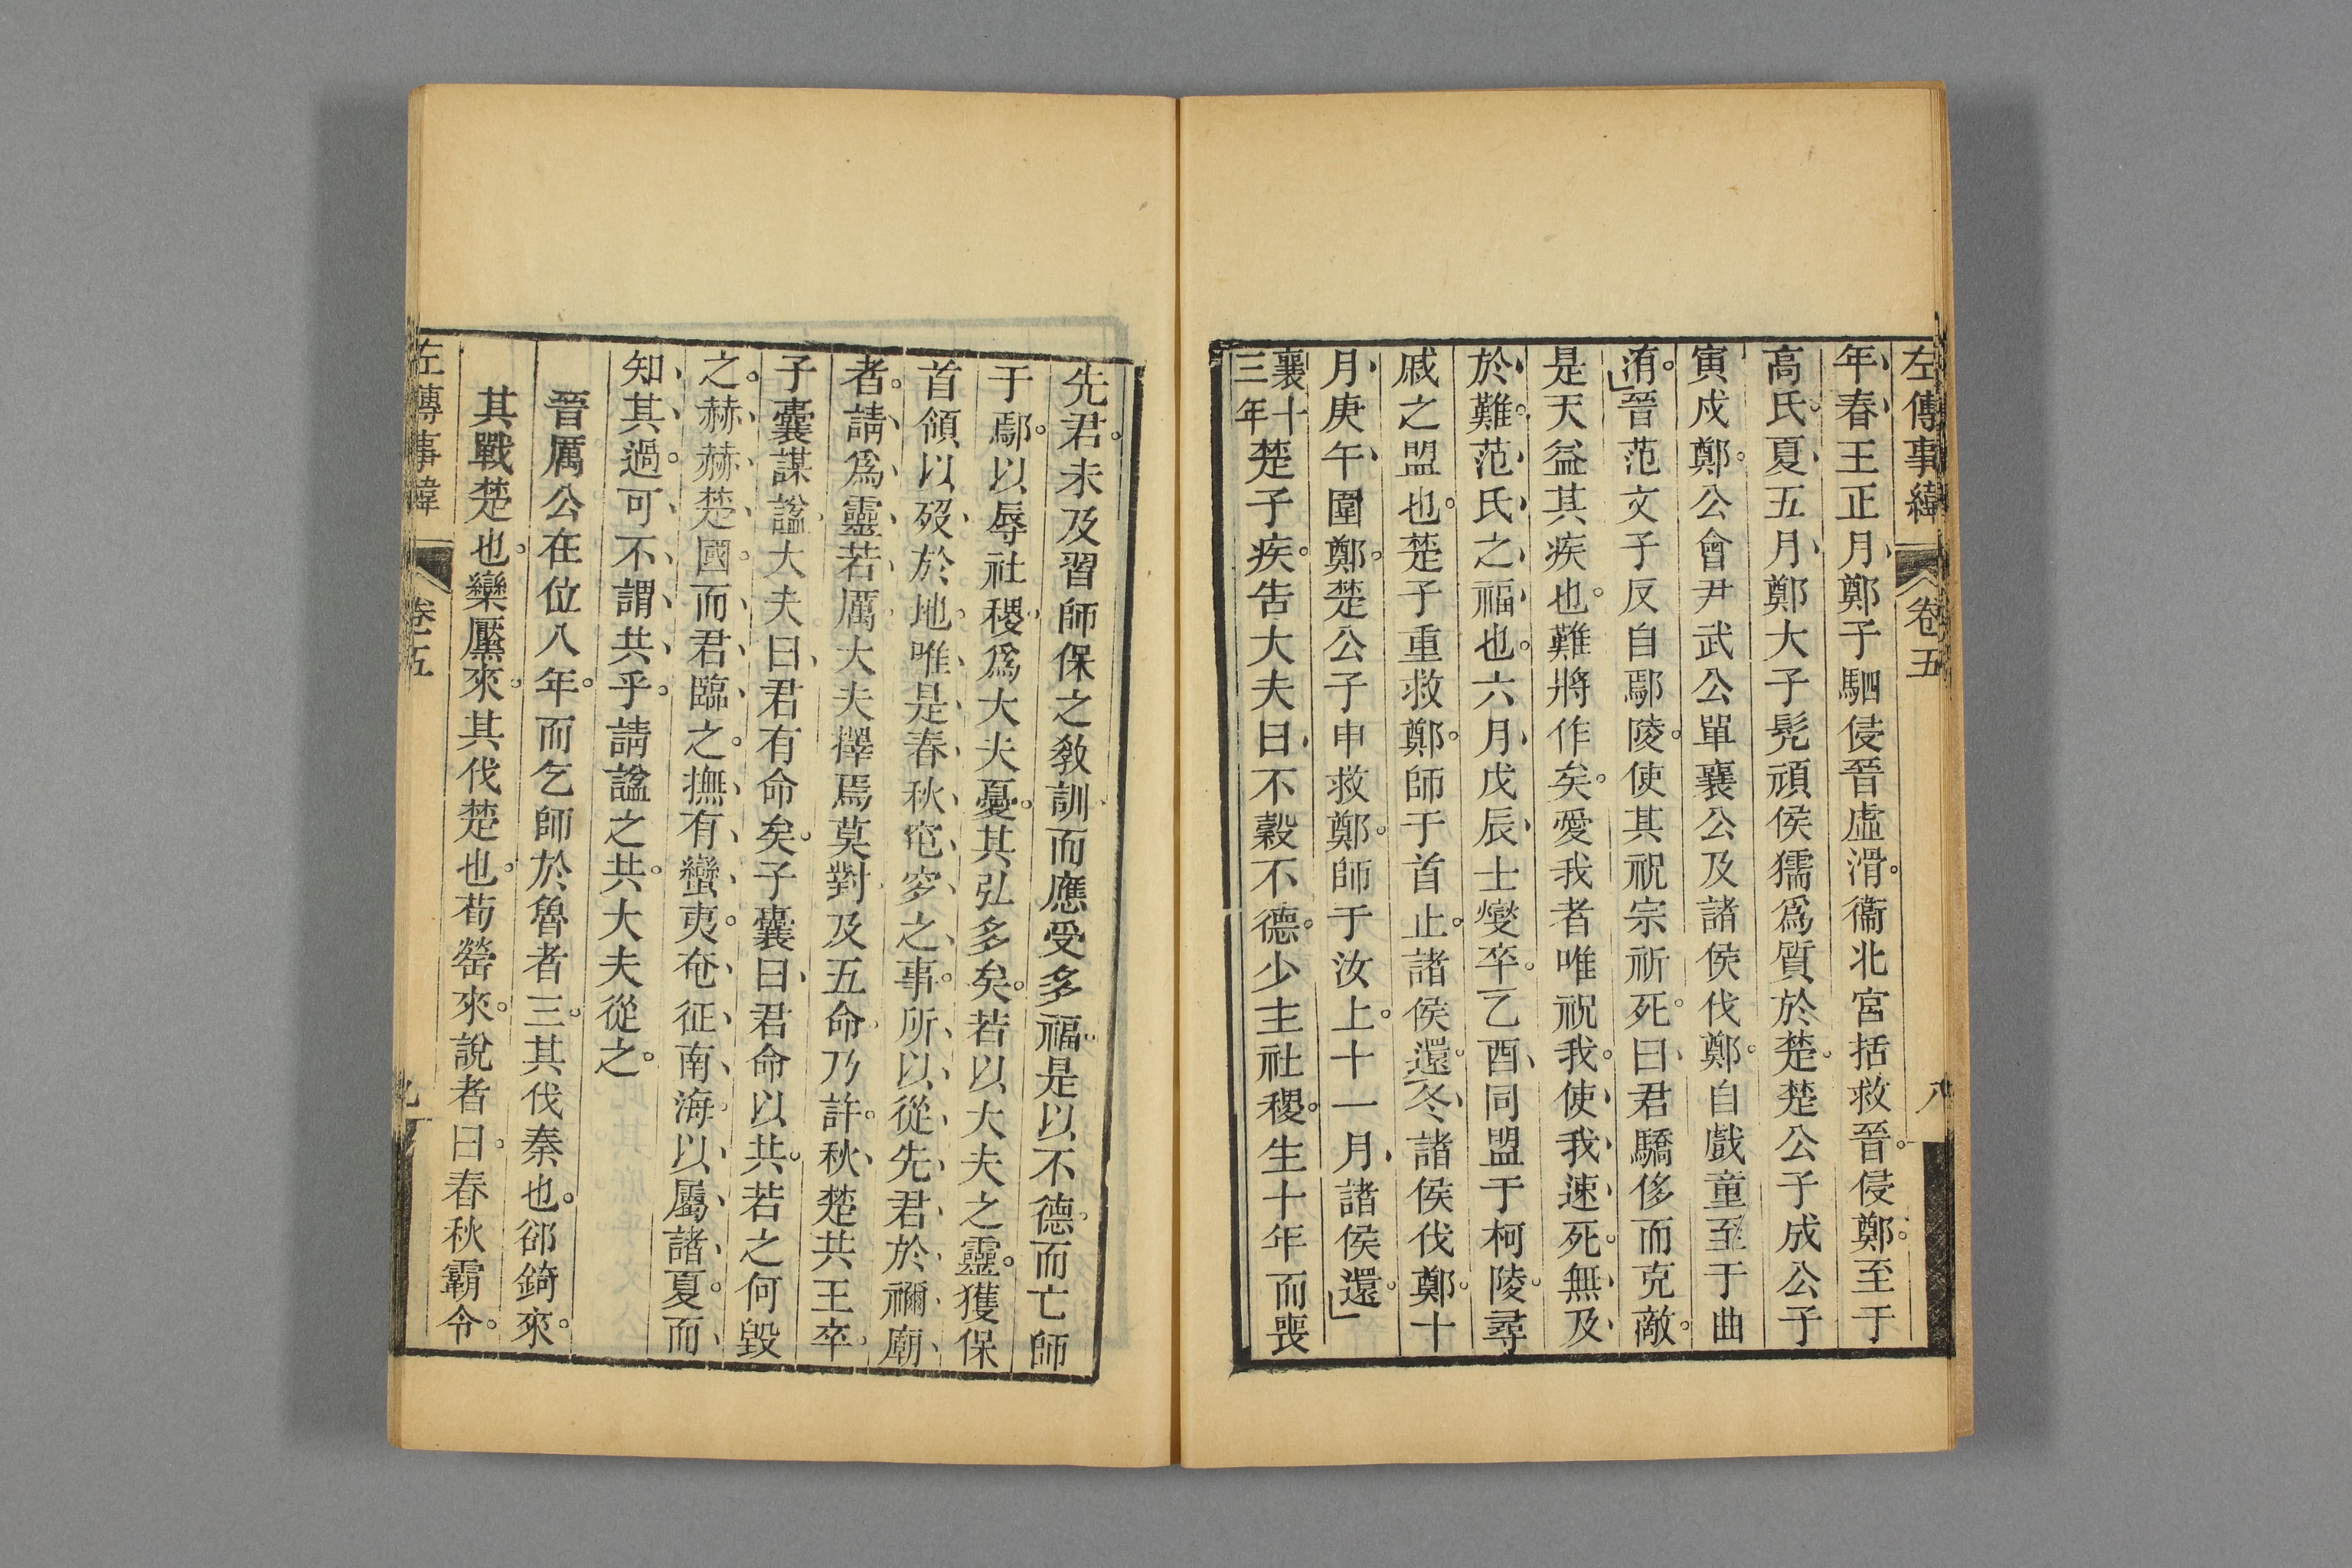 左傳事緯 卷五 八
年春王正月鄭子駟侵晉虛滑衞北宮括救晉侵鄭至于
高氏夏五月鄭大子髡頑侯獳爲質於楚楚公子成公子
寅戍鄭公會尹武公單襄公及諸侯伐鄭自戲童至于曲
洧晉范文子反自鄢陵使其祝宗祈死曰君驕侈而克敵
是天益其疾也難將作矣愛我者唯祝我使我速死無及
於難范氏之福也六月戊辰士燮卒乙酉同盟于柯陵尋
戚之盟也楚子重救鄭師于首止諸侯還冬諸侯伐鄭十
月庚午圍鄭楚公子申救鄭師于汝上十一月諸侯還
襄十三年楚子疾告大夫曰不穀不德少主社稷生十年而喪
先君未及習師保之敎訓而應受多福是以不德而亡師
于鄢以辱社稷爲大夫憂其弘多矣若以大夫之靈獲保
首領以歿於地唯是春秋窀穸之事所以從先君於禰廟
者請爲靈若厲大夫擇焉莫對及五命乃許秋楚共王卒
子囊謀諡大夫曰君有命矣子囊曰君命以共若之何毀
之赫赫楚國而君臨之撫有蠻夷奄征南海以屬諸夏而
知其過可不謂共乎請諡之共大夫從之
晉厲公在位八年而乞師於魯者三其伐秦也郤錡來
其戰楚也欒黶來其伐楚也荀罃來說者曰春秋霸令
左傳事緯 卷五 九